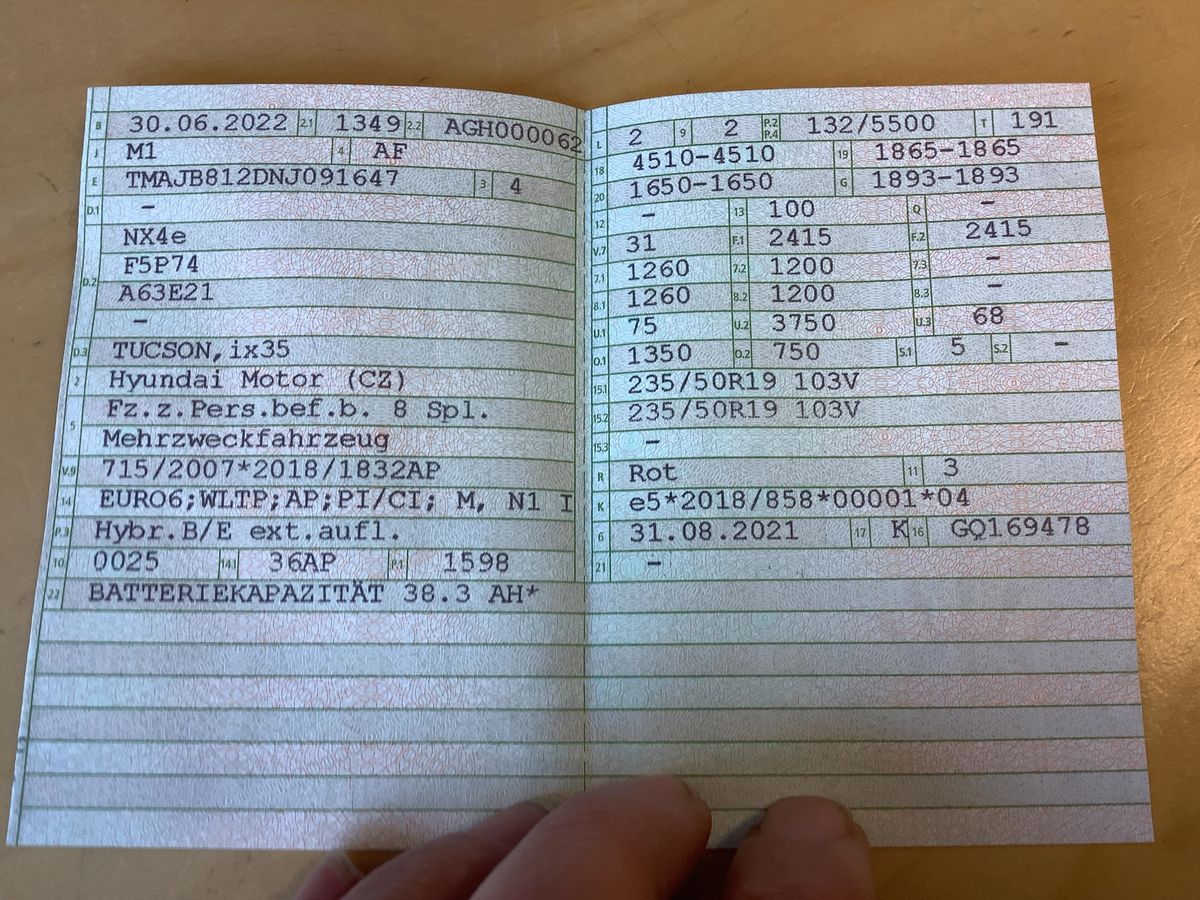 B 30.06.2022 2.1 1349 2.2 AGH000062
J M1 4 AF
E TMAJB812DNJ091647 3 4
D.1 -
D.2 NX4e
F5P74
A63E21
-
D.3 TUCSON,ix35
2 Hyundai Motor (CZ)
5 Fz.z.Pers.bef.b. 8 Spl.
Mehrzweckfahrzeug
V.9 715/2007*2018/1832AP
14 EURO6;WLTP;AP;PI/CI; M, N1 I
P.3 Hybr.B/E ext.aufl.
10 0025 14.1 36AP P.1 1598
22 BATTERIEKAPAZITÄT 38.3 AH*
L 2 9 2 P.2 P.4 132/5500 T 191
18 4510-4510 19 1865-1865
20 1650-1650 G 1893-1893
12 - 13 100 Q -
V.7 31 F.1 2415 F.2 2415
7.1 1260 7.2 1200 7.3 -
8.1 1260 8.2 1200 8.3 -
U.1 75 U.2 3750 U.3 68
O.1 1350 O.2 750 S.1 5 S.2 -
15.1 235/50R19 103V
15.2 235/50R19 103V
15.3 -
R Rot 11 3
K e5*2018/858*00001*04
6 31.08.2021 17 K 16 GQ169478
21 -